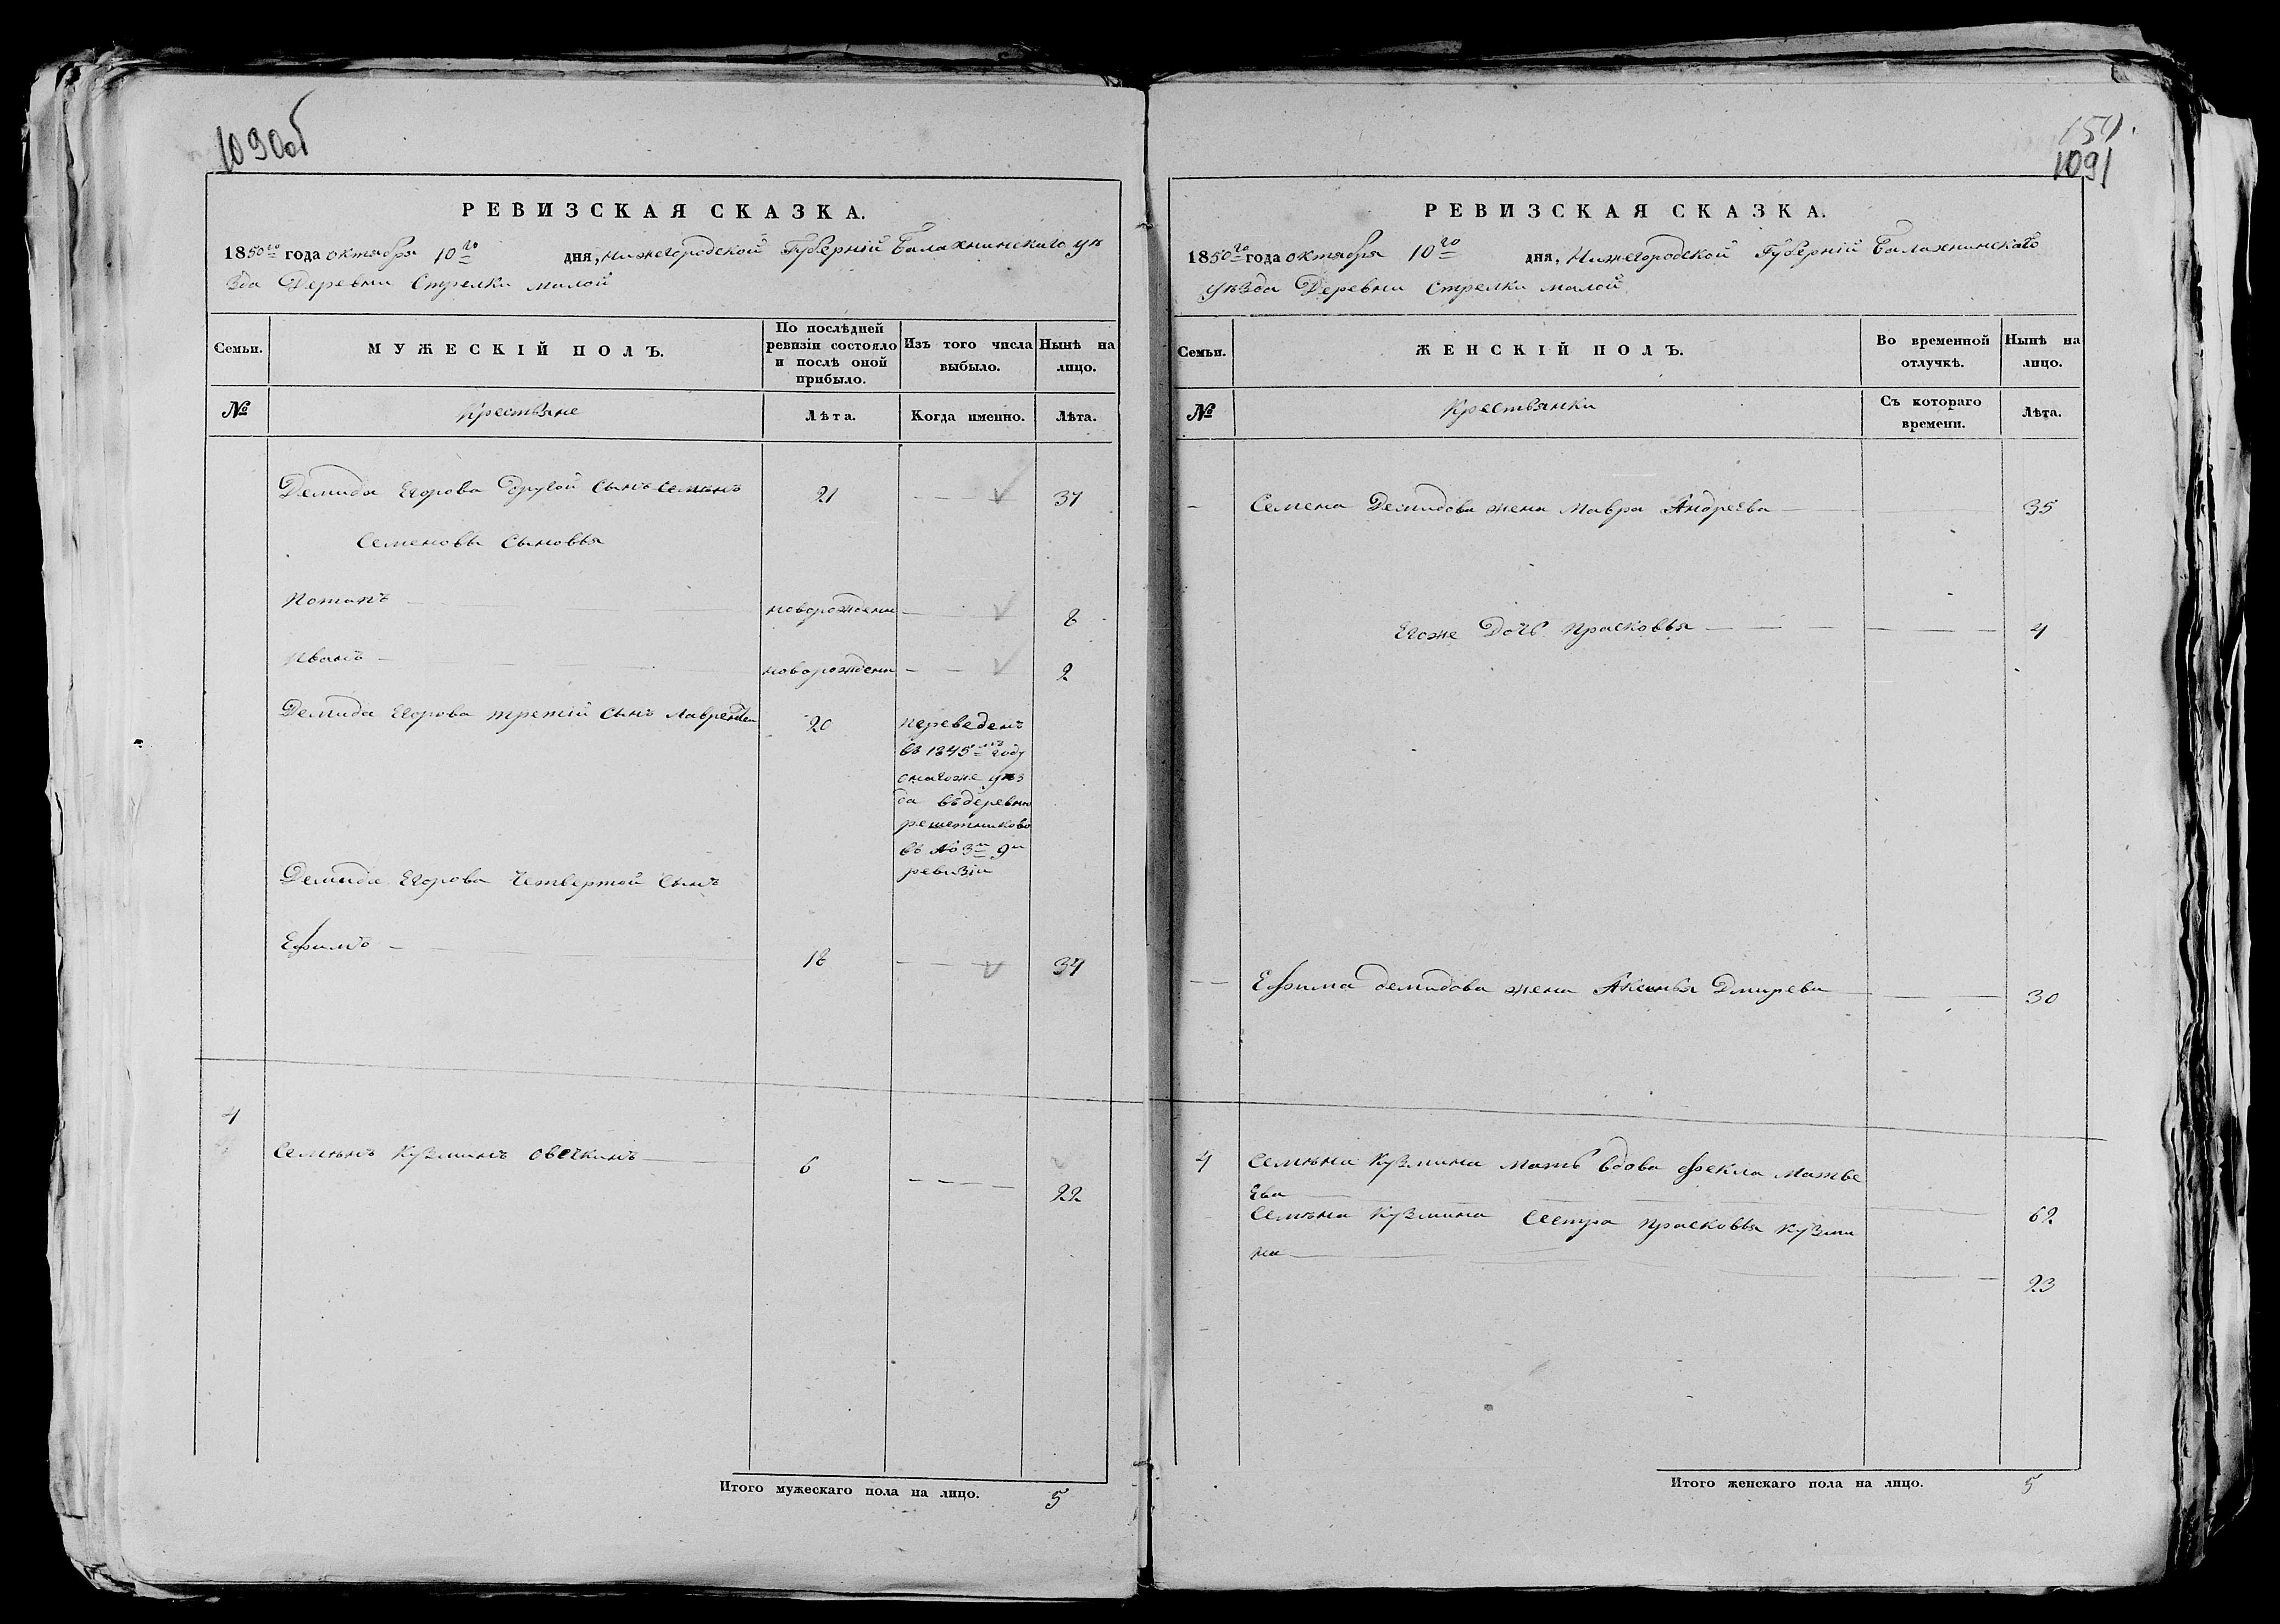 1090об
РЕВИЗСКАЯ СКАЗКА.
1850го года октября 10го дня, Нижегородской Губерній Балахнинскаго уѣ
зда Деревни Стрелки малой
Семьи.
МУЖЕСКІЙ ПОЛЪ.
По послѣдней ревизіи состояло и послѣ оной прибыло.
Изъ того числа выбыло.
Нынѣ на лицо.
№
Крестьяне
Лѣта.
Когда именно.
Лѣта.
Демида Егорова другой сынъ Семинъ 21 37
Семеновы сыновья
Потапъ новорожденн 8
Иванъ новорожденн 2
Демида Егорова третій сынъ Лаврентеи 20 переведенъ
въ 1845мъ году
онагоже уѣз
да въ деревню
решетниково
въ № 3й 9й
ревизіи
Демида Егорова Четвертой сынъ
Ефимъ 18 34
4
Семѣнъ Кузминъ Овечкинъ 6 22
Итого мужескаго пола на лицо. 5
1091
РЕВИЗСКАЯ СКАЗКА.
1850го года октября 10го дня, Нижегородской Губерній Балахнинскаго
уѣзда Деревни Стрелки малой
Семьи.
ЖЕНСКІЙ ПОЛЪ.
Во временной отлучкѣ.
Нынѣ на лицо.
№
Крестьянки
Съ котораго времени.
Лѣта.
Семена Демидова жена Мавра Андреева 35
Егоже Дочь Прасковья 4
Ефима Демидова жена Аксинья Дмирева 30
4 Семѣна Кузмина мать вдова Фекла Матве
ева 62
Семѣна Кузмина Сестра Прасковья Кузми
на 23
Итого женскаго пола на лицо. 5